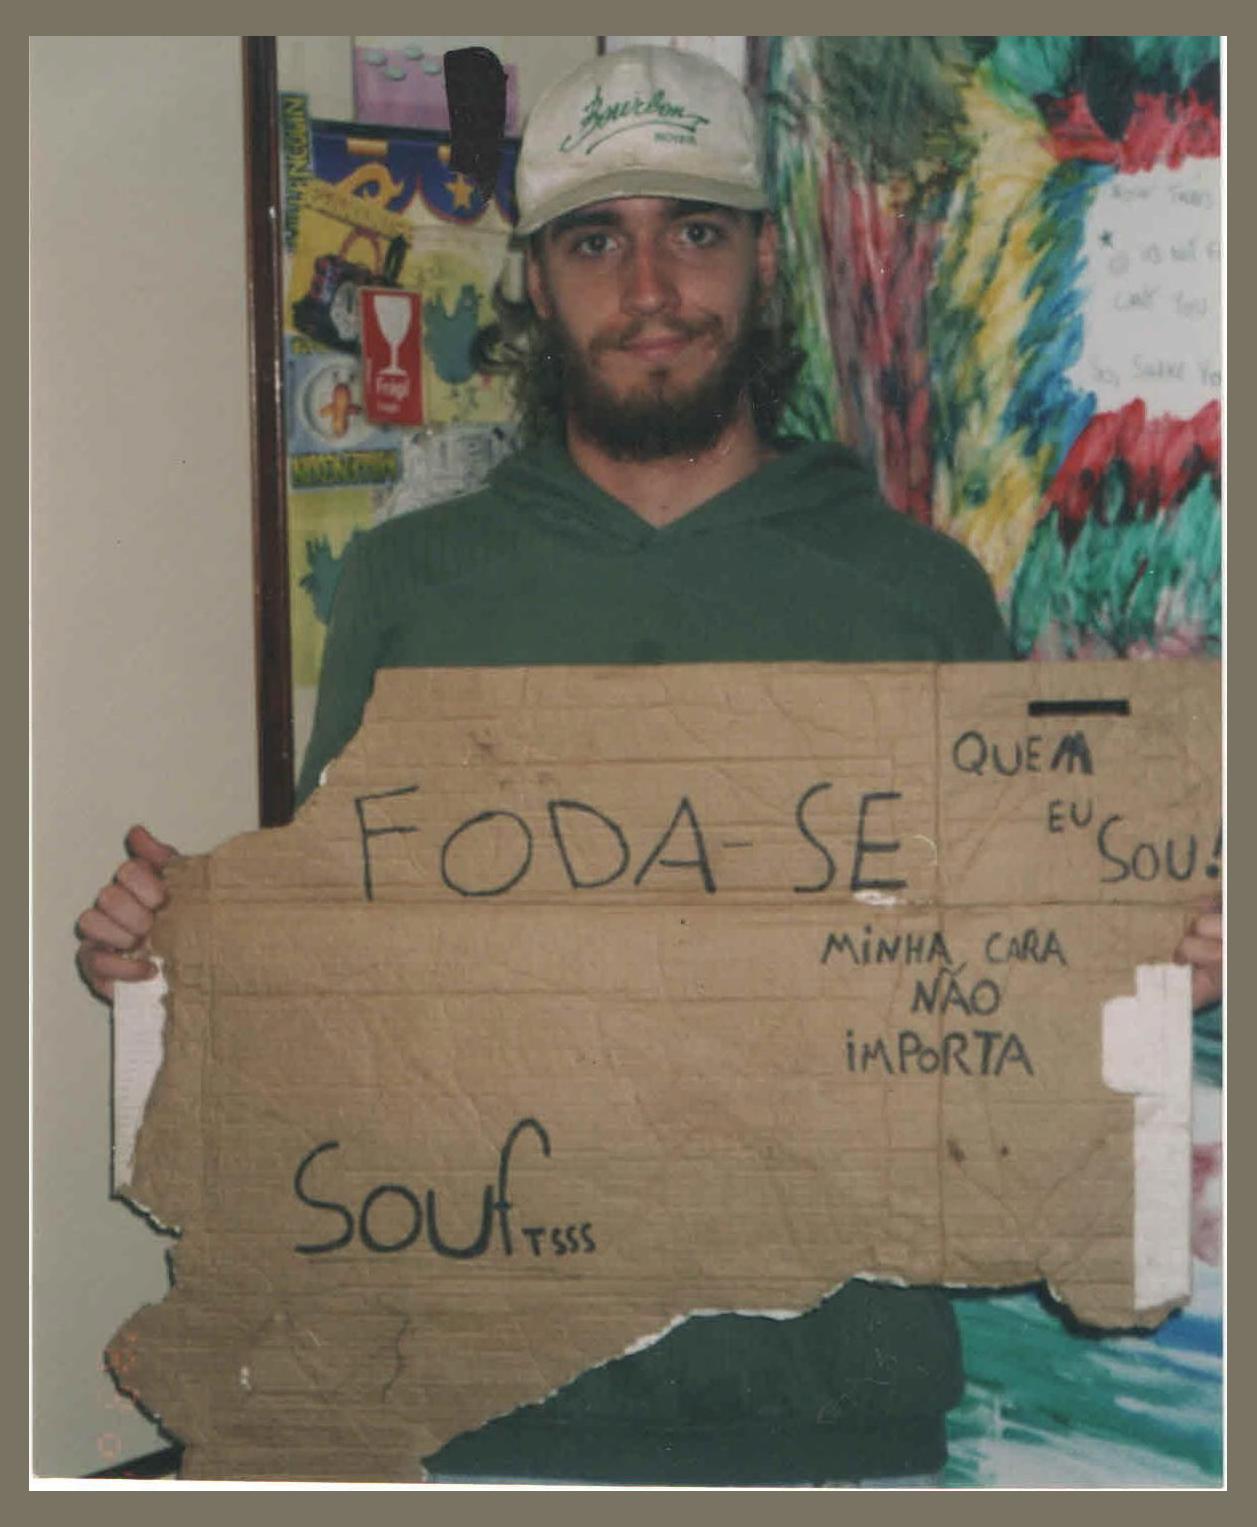 Bourbon
Fragil
FODA-SE
QUEM
EU
SOU!
MINHA CARA
NÃO
IMPORTA
SOUf
TSSS